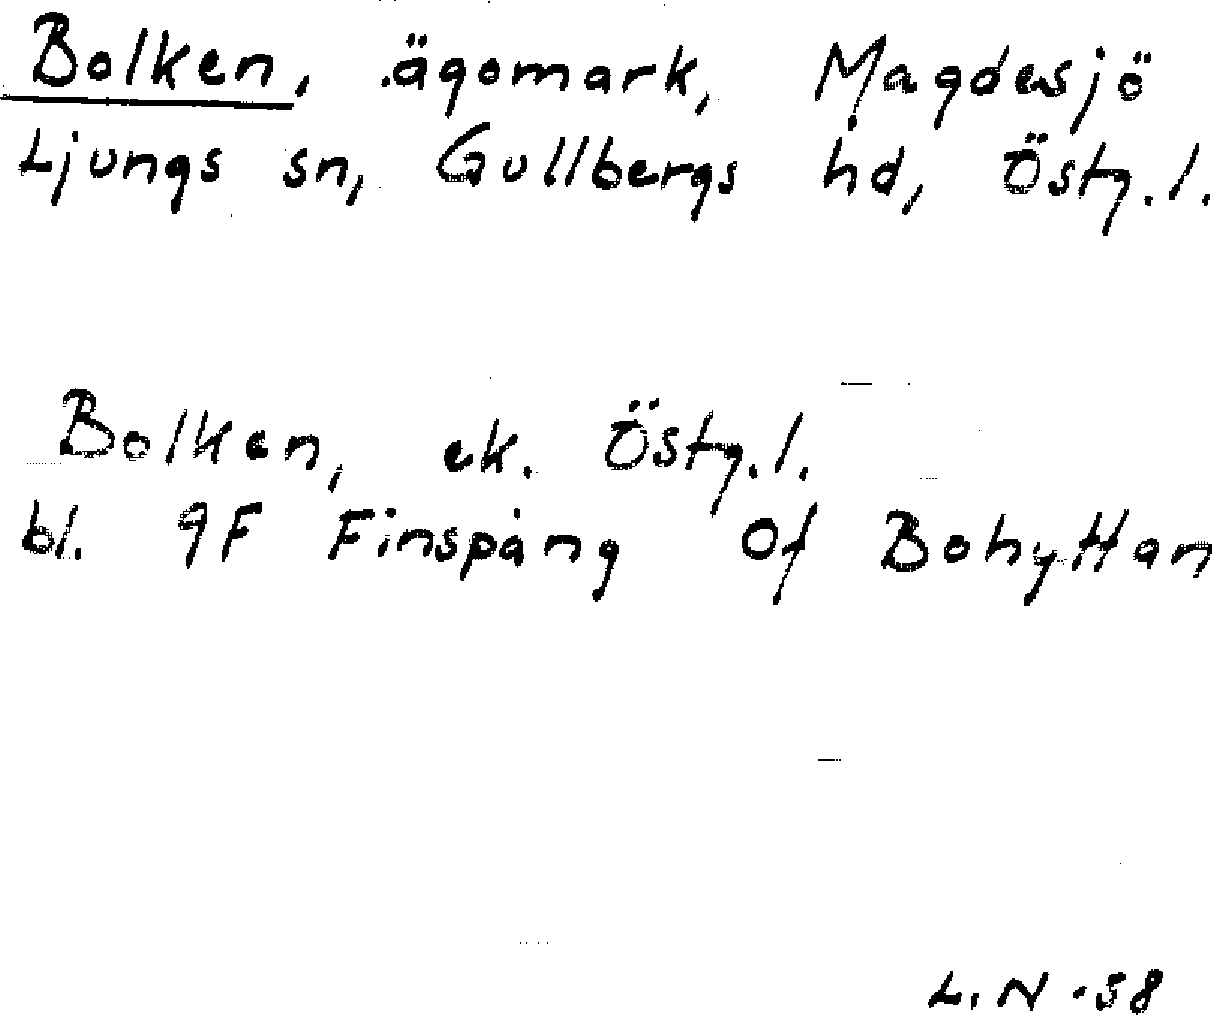 Bolken, ägomark, Magdesjö
Ljungs sn, Gullbergs hd, Östg.l.
Bolken, ek. Östg.l.
bl. 9F Finspång 0f Bohyttan
L.N -58